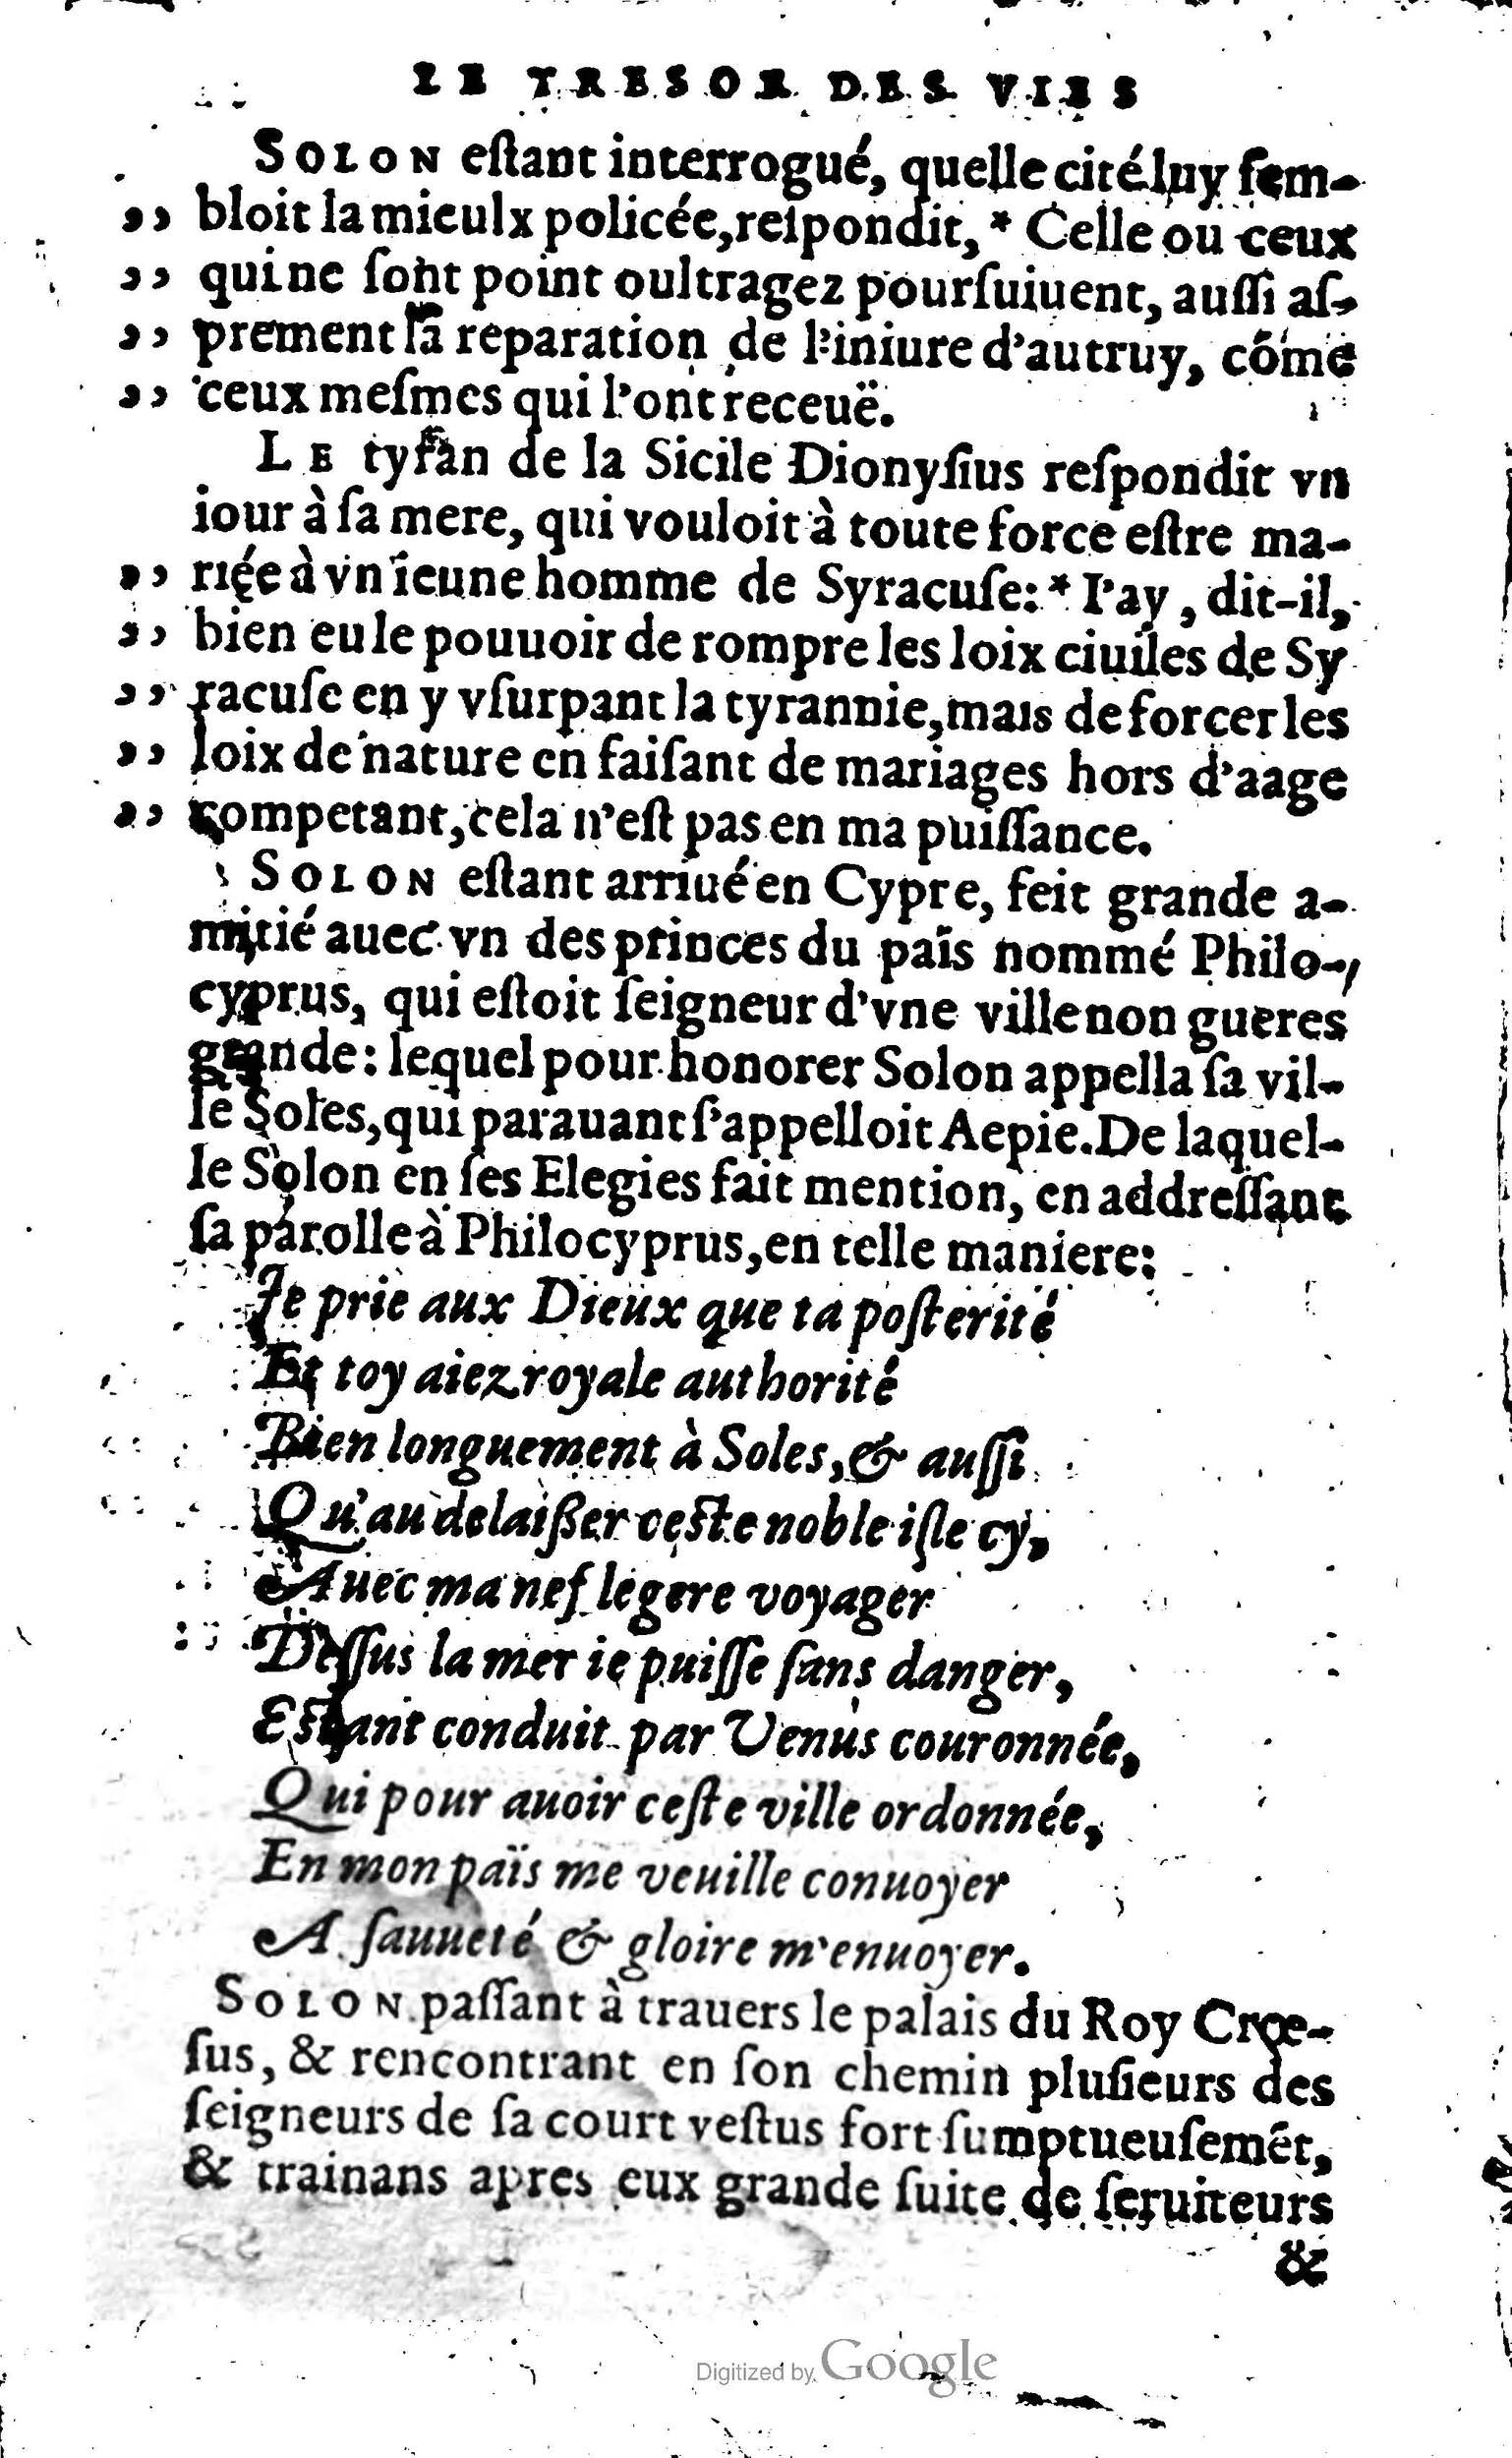 LE TRESOR DES VIES
SOLON eſtant interrogué, quelle cité luy ſem-
,, bloit la mieulx policée, reſpondit, * Celle ou ceux
,, qui ne ſont point oultragez pourſuiuent, auſſi aſ-
,, prement la reparation de l'iniure d'autruy, cōme
,, ceux meſmes qui l'ont receuë.
LE tyran de la Sicile Dionyſius reſpondit vn
iour à ſa mere, qui vouloit à toute force eſtre ma-
,, riée à vn ieune homme de Syracuſe: * I'ay, dit-il,
,, bien eu le pouuoir de rompre les loix ciuiles de Sy
,, racuſe en y vſurpant la tyrannie, mais de forcer les
,, loix de nature en faiſant de mariages hors d'aage
,, competant, cela n'eſt pas en ma puiſſance.
SOLON eſtant arriué en Cypre, feit grande a-
mitié auec vn des princes du païs nommé Philo-
cyprus, qui eſtoit ſeigneur d'vne ville non gueres
grande: lequel pour honorer Solon appella ſa vil-
le Soles, qui parauant ſ'appelloit Aepie. De laquel-
le Solon en ſes Elegies fait mention, en addreſſant
ſa parolle à Philocyprus, en telle maniere:
Je prie aux Dieux que ta poſterité
Et toy aiez royale authorité
Bien longuement à Soles, & auſſi
Qu'au delaißer ceſte noble iſle cy,
Auec ma nef legere voyager
Deſſus la mer ie puiſſe ſans danger,
Eſtant conduit par Venus couronnée,
Qui pour auoir ceſte ville ordonnée,
En mon païs me veuille conuoyer
A ſauueté & gloire m'enuoyer.
SOLON paſſant à trauers le palais du Roy Crœ-
ſus, & rencontrant en ſon chemin pluſieurs des
ſeigneurs de ſa court veſtus fort ſumptueuſemēt,
& trainans apres eux grande ſuite de ſeruiteurs
&
Digitized by Google